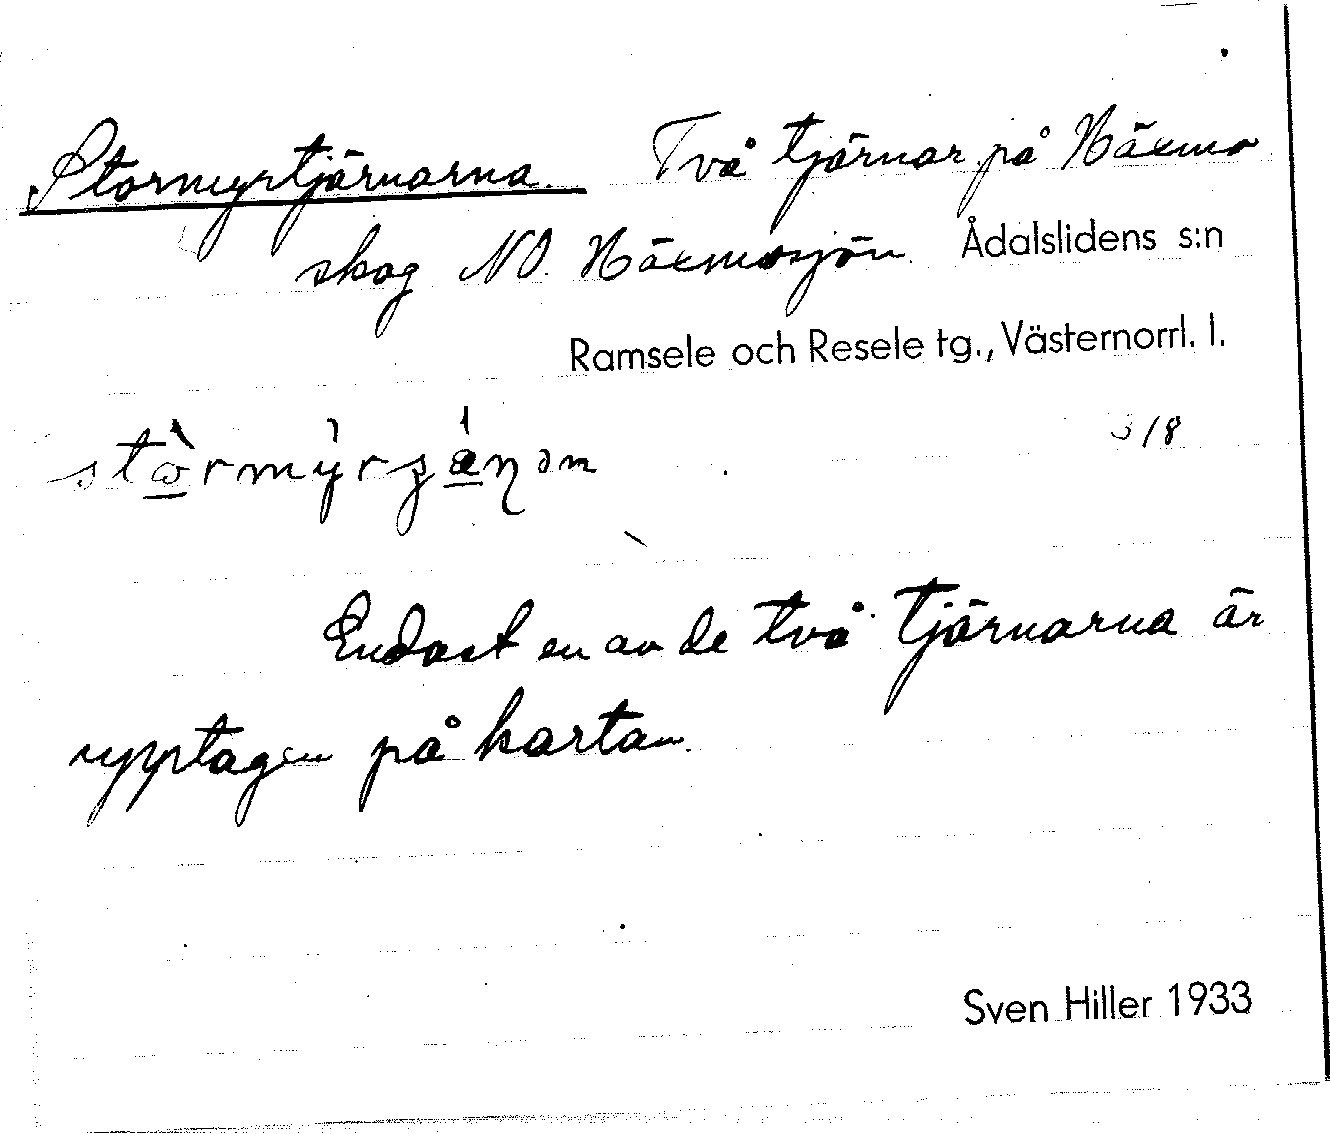 Stormyrtjärnarna. Två tjärnar på Näxmo
skog NO. Näxmosjön. Ådalslidens s:n
Ramsele och Resele tg., Västernorrl. l.
3/8
Endast en av de två tjärnarna är
upptagen på kartan.
Sven Hiller 1933